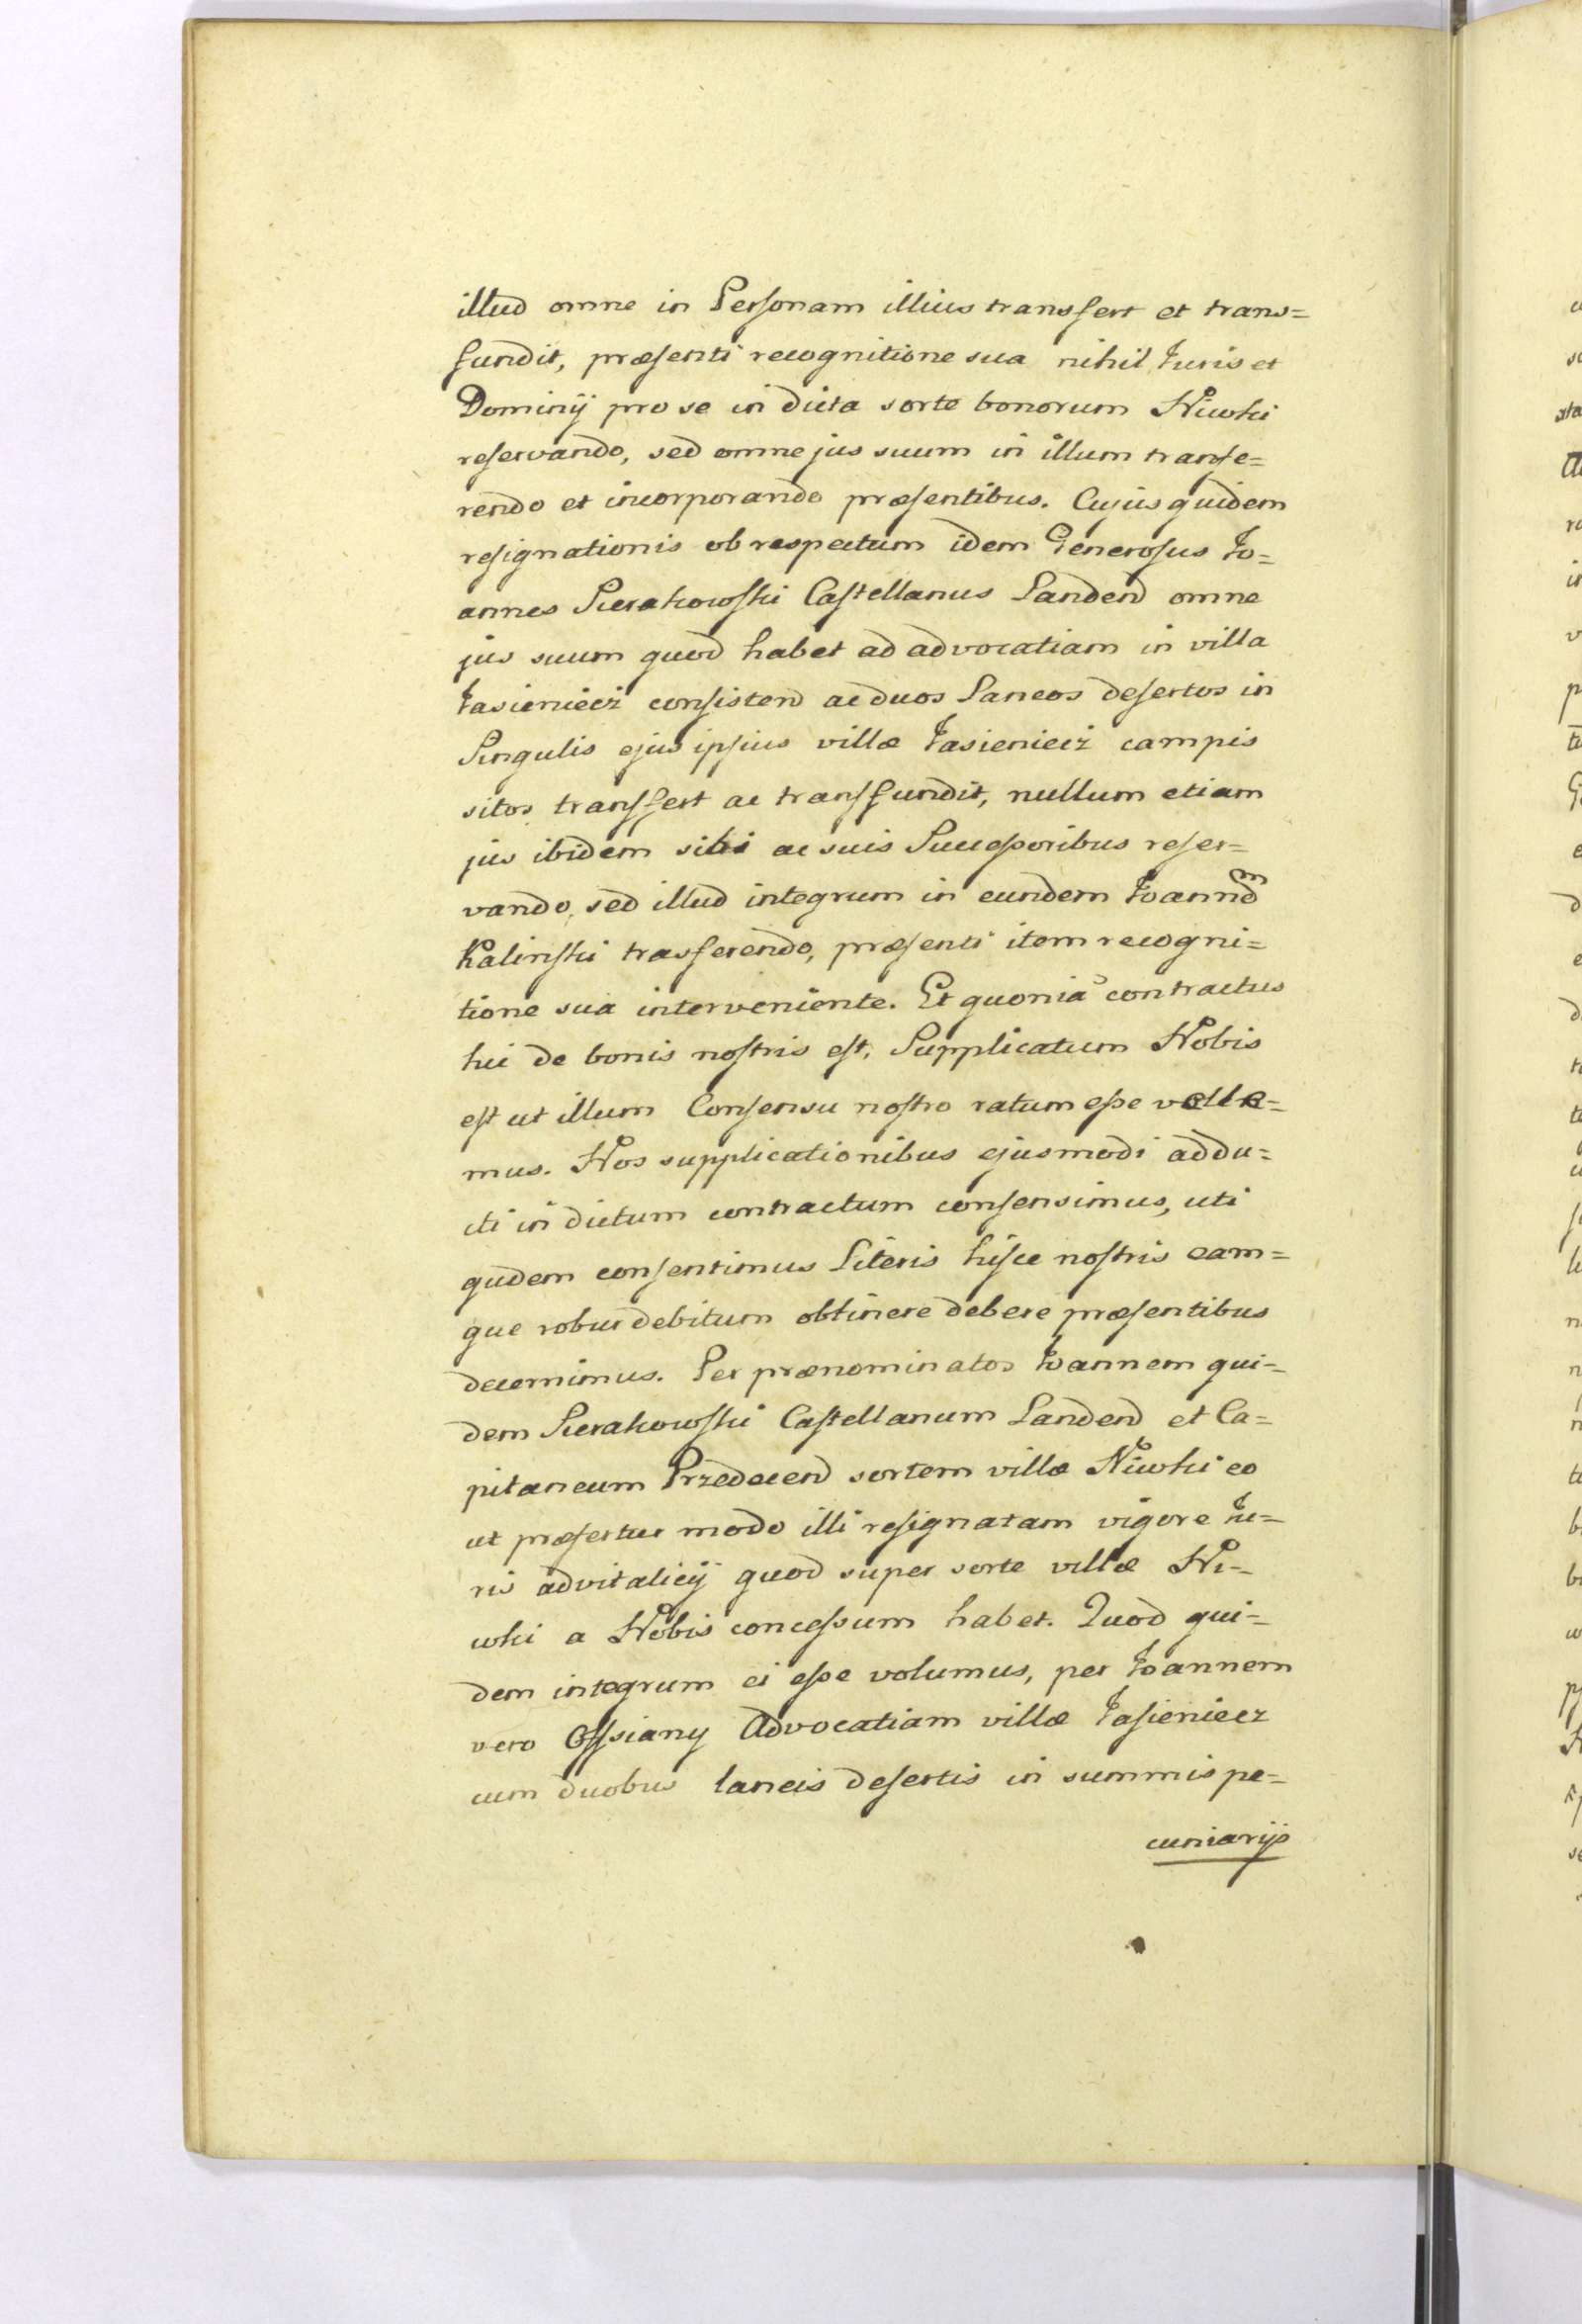 illud omne in Personam illius transfert et trans=
fundit, præsenti recognitione sua nihil Juris et
Dominij pro se in dicta sorte bonorum Niwki
reservando, sed omne jus suum in illum transfe=
rendo et incorporando præsentibus. Cujus quidem
resignationis ob respectum idem Generosus Jo=
annes Sierakowski Castellanus Landend omne
jus suum quod habet ad advocatiam in villa
Jasieniecz consistend ac duos Laneos desertos in
Singulis ejus ipsius villæ Jasieniecz campis
sitos transfert ac transfundit, nullum etiam
jus ibidem sibi ac suis Successoribus reser=
vando, sed illud integrum in eundem Joannem
Kalinski trasferendo, præsenti item recogni=
tione sua interveniente. Et quonia contractus
hic de bonis nostris est, Supplicatum Nobis
est ut illum Consensu nostro ratum esse velle=
mus. Nos supplicationibus ejusmodi addu=
cti in dictum contractum consensimus, uti
qudem consentimus Literis hisce nostris eam=
que robur debitum obtinere debere præsentibus
decernimus. Per prænominatos Joannem qui=
dem Sierakowski Castellanum Landend et Ca=
pitaneum Przedecend sortem villæ Niwki eo
ut præfertur modo illi resignatam vigore Ju=
ris advitalicij quod super sorte villæ Ni=
wki a Nobis concessum habet. Quod qui=
dem integrum ei esse volumus, per Joannem
vero Ossiany Advocatiam villæ Jasieniecz
cum duobus laneis desertis in summis pe=
cuniarijs